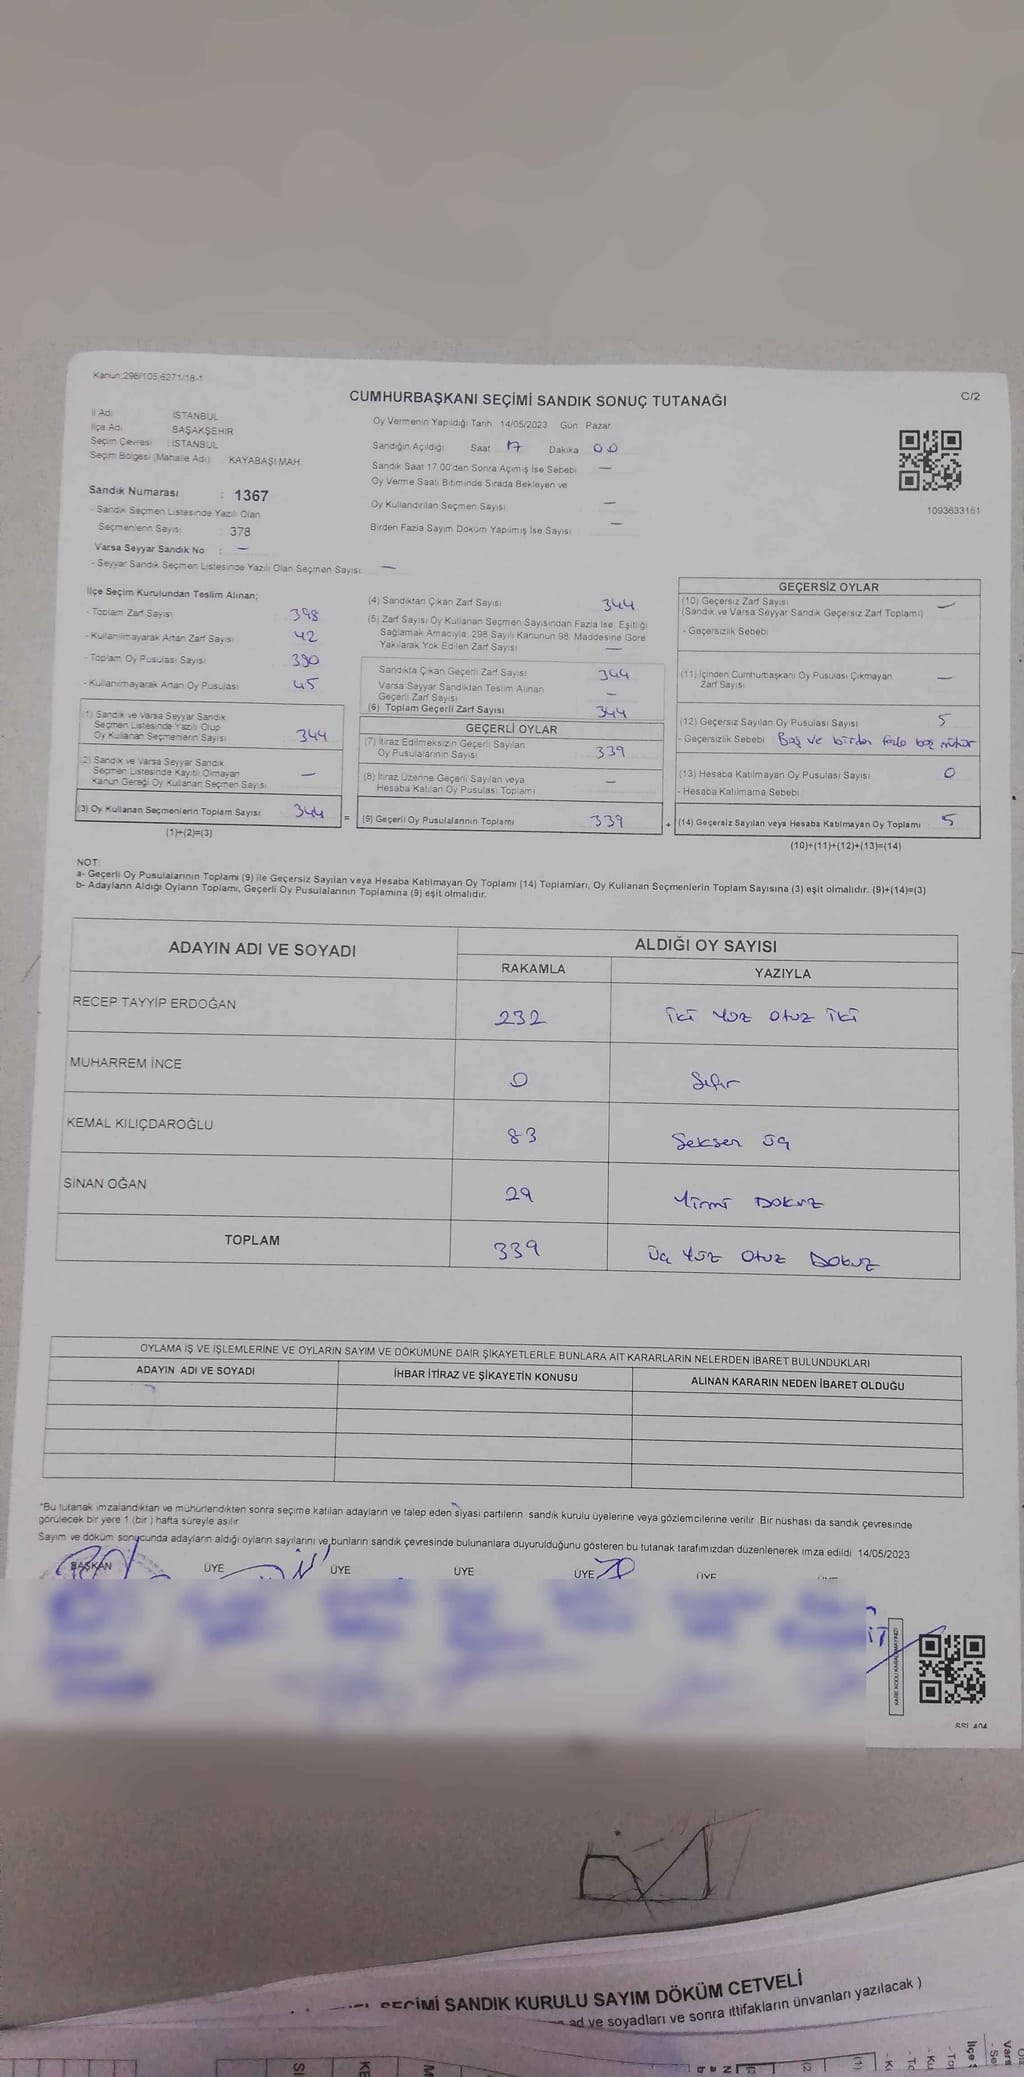 Kanun:298/105,6271/18-1
CUMHURBAŞKANI SEÇİMİ SANDIK SONUÇ TUTANAĞI
C/2
İl Adı : İSTANBUL
İlçe Adı : BAŞAKŞEHİR
Seçim Çevresi : İSTANBUL
Seçim Bölgesi (Mahalle Adı) : KAYABAŞI MAH.
Sandık Numarası : 1367
- Sandık Seçmen Listesinde Yazılı Olan
Seçmenlerin Sayısı : 378
Varsa Seyyar Sandık No : —
- Seyyar Sandık Seçmen Listesinde Yazılı Olan Seçmen Sayısı: —
Oy Vermenin Yapıldığı Tarih 14/05/2023 Gün Pazar
Sandığın Açıldığı Saat 17 Dakika 00
Sandık Saat 17.00'den Sonra Açılmış İse Sebebi —
Oy Verme Saati Bitiminde Sırada Bekleyen ve
Oy Kullandırılan Seçmen Sayısı —
Birden Fazla Sayım Döküm Yapılmış İse Sayısı —
1093633151
İlçe Seçim Kurulundan Teslim Alınan;
- Toplam Zarf Sayısı 398
- Kullanılmayarak Artan Zarf Sayısı 42
- Toplam Oy Pusulası Sayısı 390
- Kullanılmayarak Artan Oy Pusulası 45
(1) Sandık ve Varsa Seyyar Sandık
Seçmen Listesinde Yazılı Olup
Oy Kullanan Seçmenlerin Sayısı 344
(2) Sandık ve Varsa Seyyar Sandık
Seçmen Listesinde Kayıtlı Olmayan
Kanun Gereği Oy Kullanan Seçmen Sayısı —
(3) Oy Kullanan Seçmenlerin Toplam Sayısı 344 =
(1)+(2)=(3)
(4) Sandıktan Çıkan Zarf Sayısı 344
(5) Zarf Sayısı Oy Kullanan Seçmen Sayısından Fazla İse, Eşitliği
Sağlamak Amacıyla, 298 Sayılı Kanunun 98. Maddesine Göre
Yakılarak Yok Edilen Zarf Sayısı —
Sandıkta Çıkan Geçerli Zarf Sayısı 344
Varsa Seyyar Sandıktan Teslim Alınan
Geçerli Zarf Sayısı —
(6) Toplam Geçerli Zarf Sayısı 344
GEÇERLİ OYLAR
(7) İtiraz Edilmeksizin Geçerli Sayılan
Oy Pusulalarının Sayısı 339
(8) İtiraz Üzerine Geçerli Sayılan veya
Hesaba Katılan Oy Pusulası Toplamı —
(9) Geçerli Oy Pusulalarının Toplamı 339 +
GEÇERSİZ OYLAR
(10) Geçersiz Zarf Sayısı —
(Sandık ve Varsa Seyyar Sandık Geçersiz Zarf Toplamı)
- Geçersizlik Sebebi
(11) İçinden Cumhurbaşkanı Oy Pusulası Çıkmayan
Zarf Sayısı —
(12) Geçersiz Sayılan Oy Pusulası Sayısı 5
- Geçersizlik Sebebi Boş ve birden fazla boş mühür
(13) Hesaba Katılmayan Oy Pusulası Sayısı 0
- Hesaba Katılmama Sebebi
(14) Geçersiz Sayılan veya Hesaba Katılmayan Oy Toplamı 5
(10)+(11)+(12)+(13)=(14)
NOT:
a- Geçerli Oy Pusulalarının Toplamı (9) ile Geçersiz Sayılan veya Hesaba Katılmayan Oy Toplamı (14) Toplamları, Oy Kullanan Seçmenlerin Toplam Sayısına (3) eşit olmalıdır. (9)+(14)=(3)
b- Adayların Aldığı Oyların Toplamı, Geçerli Oy Pusulalarının Toplamına (9) eşit olmalıdır.
ADAYIN ADI VE SOYADI ALDIĞI OY SAYISI
RAKAMLA YAZIYLA
RECEP TAYYİP ERDOĞAN 232 iki yüz otuz iki
MUHARREM İNCE 0 Sıfır
KEMAL KILIÇDAROĞLU 83 Seksen üç
SİNAN OĞAN 29 Yirmi Dokuz
TOPLAM 339 Üç yüz otuz Dokuz
OYLAMA İŞ VE İŞLEMLERİNE VE OYLARIN SAYIM VE DÖKÜMÜNE DAİR ŞİKAYETLERLE BUNLARA AİT KARARLARIN NELERDEN İBARET BULUNDUKLARI
ADAYIN ADI VE SOYADI İHBAR İTİRAZ VE ŞİKAYETİN KONUSU ALINAN KARARIN NEDEN İBARET OLDUĞU
*Bu tutanak imzalandıktan ve mühürlendikten sonra seçime katılan adayların ve talep eden siyasi partilerin sandık kurulu üyelerine veya gözlemcilerine verilir. Bir nüshası da sandık çevresinde
görülecek bir yere 1 (bir) hafta süreyle asılır.
Sayım ve döküm sonucunda adayların aldığı oyların sayılarını ve bunların sandık çevresinde bulunanlara duyurulduğunu gösteren bu tutanak tarafımızdan düzenlenerek imza edildi. 14/05/2023
BAŞKAN ÜYE ÜYE ÜYE ÜYE ÜYE
KARE KODU KARALAMAYINIZ!
SSI 404
SEÇİMİ SANDIK KURULU SAYIM DÖKÜM CETVELİ
ad ve soyadları ve sonra ittifakların ünvanları yazılacak )